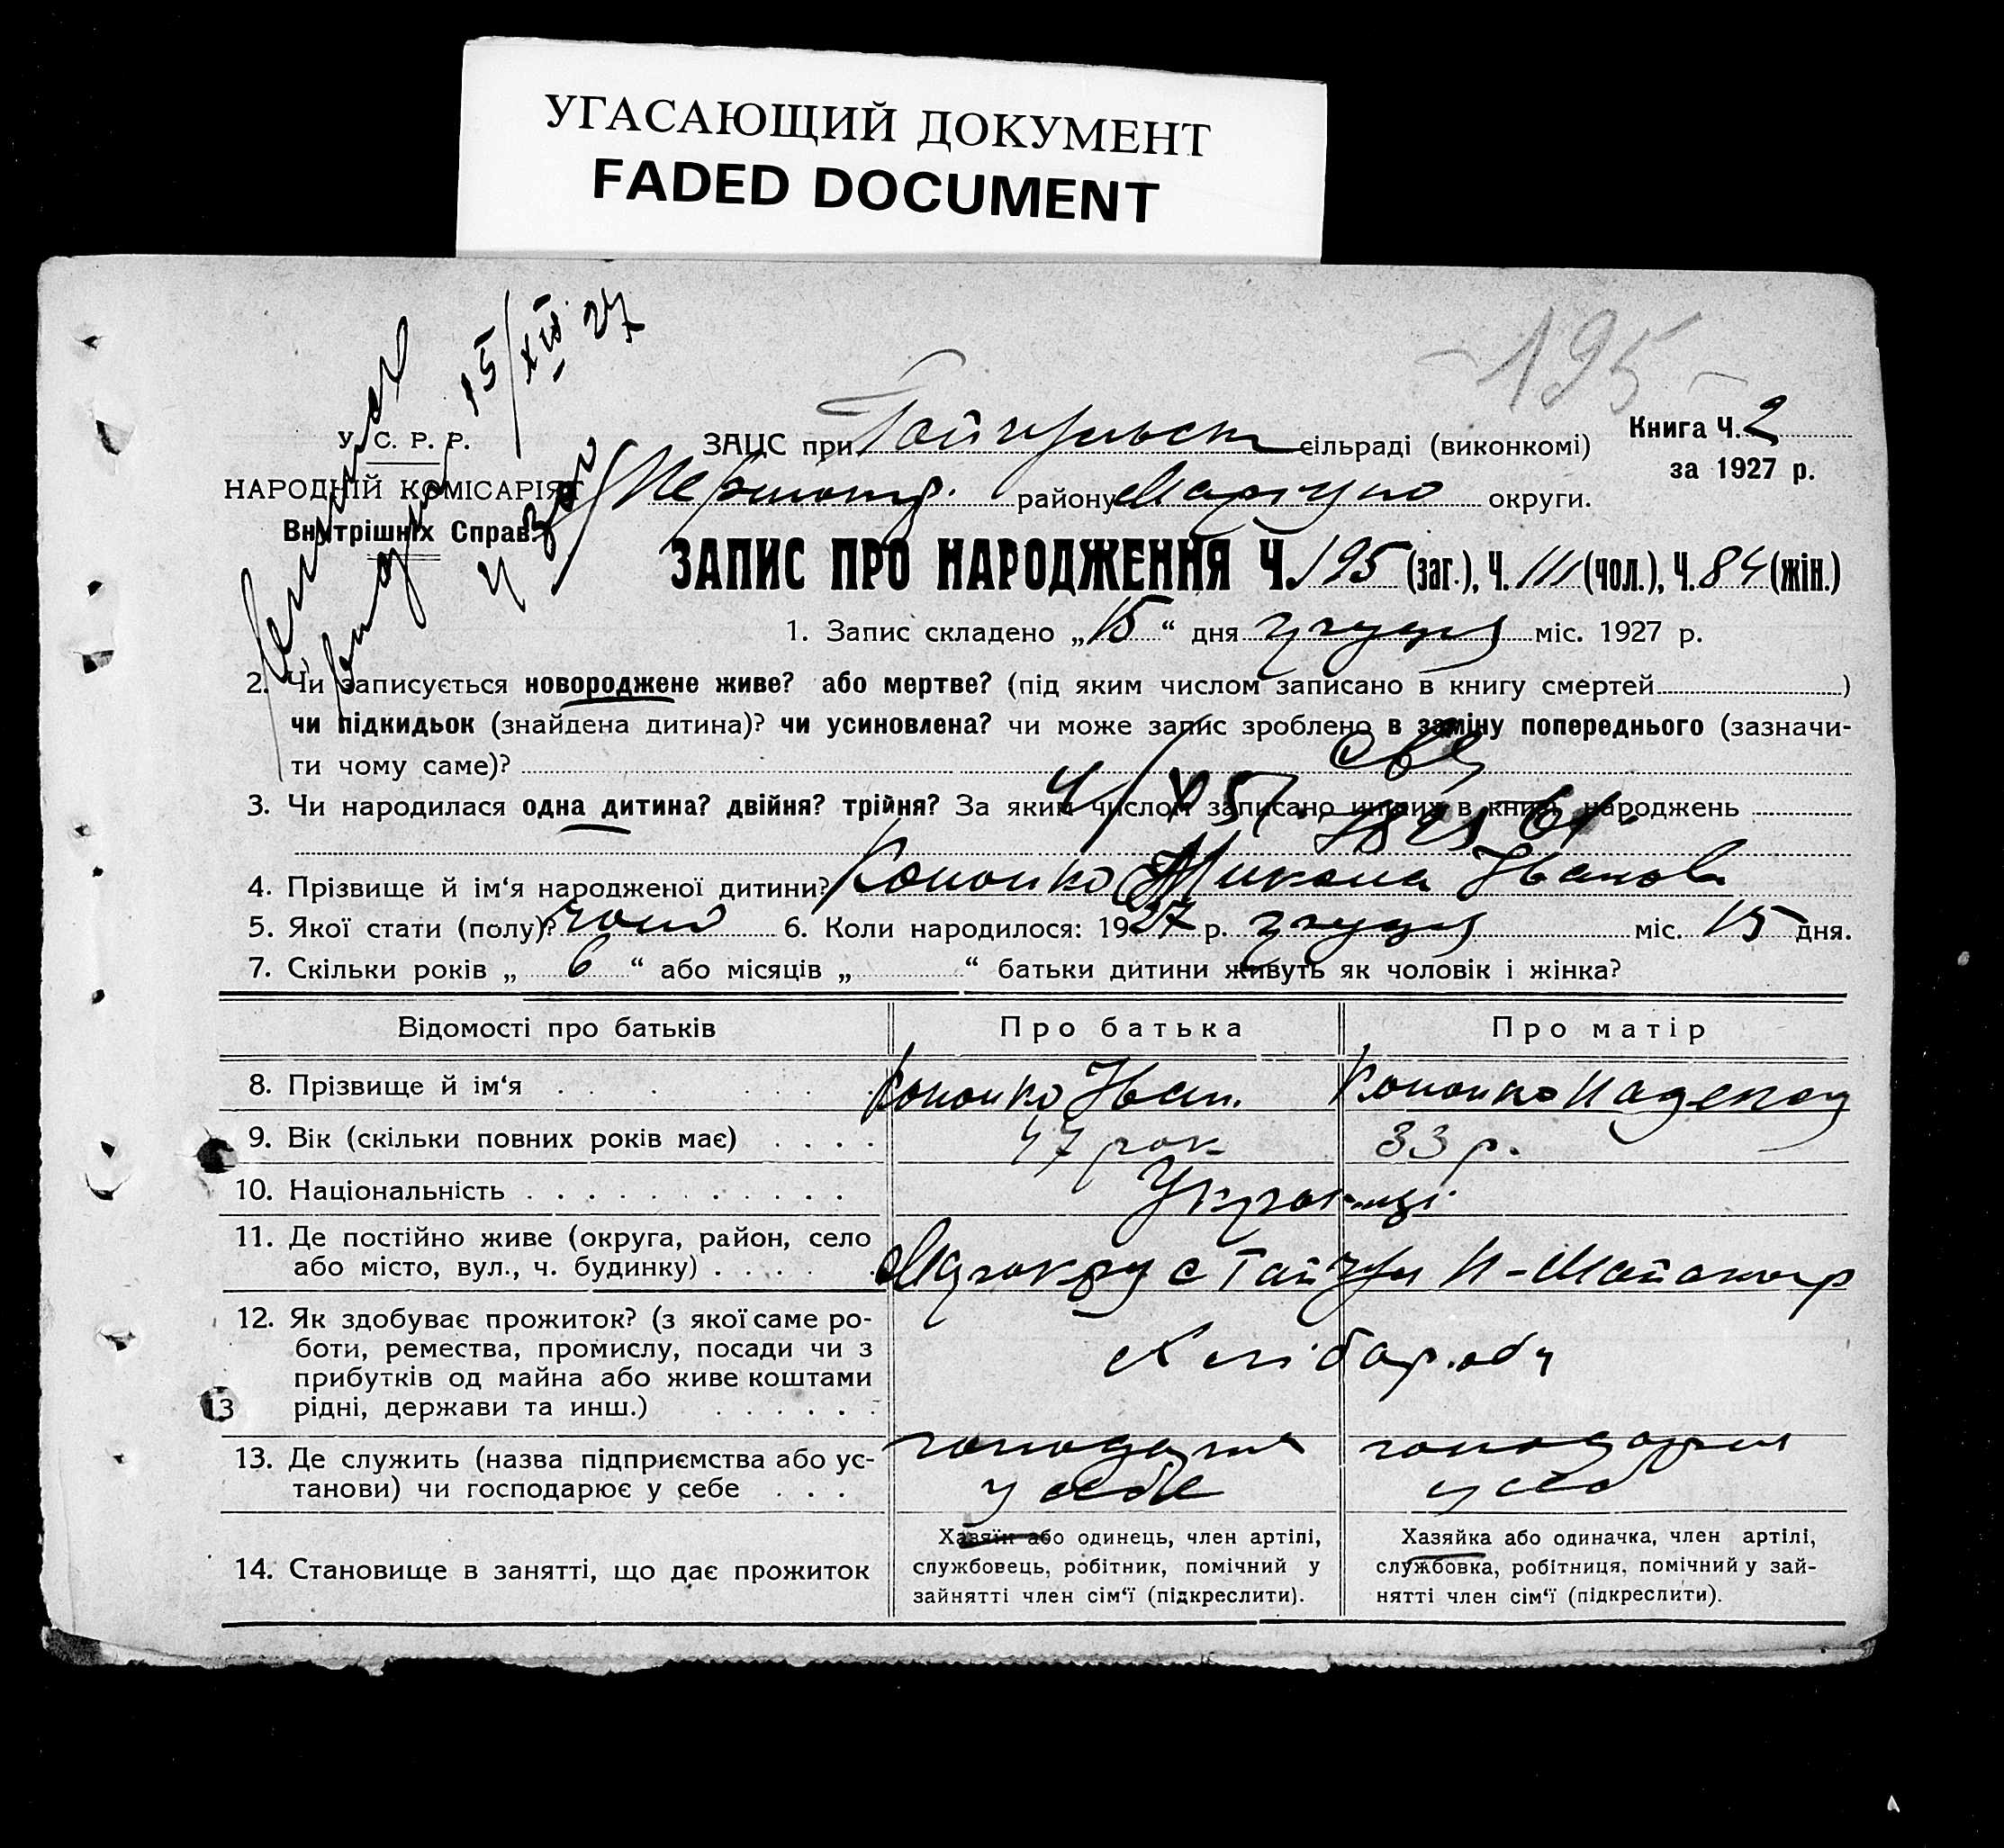 УГАСАЮЩИЙ ДОКУМЕНТ
FADED DOCUMENT
15/XII 27
-195-
У. С. Р. Р.
НАРОДНІЙ КОМІСАРІЯТ
Внутрішніх Справ.
ЗАЦС при сільраді (виконкомі)
району округи.
Книга Ч. 2
за 1927 р.
ЗАПИС ПРО НАРОДЖЕННЯ Ч. 195 (заг.), Ч. 111 (чол.), Ч. 84 (жін.)
1. Запис складено „15“ дня грудня міс. 1927 р.
2. Чи записується новороджене живе? або мертве? (під яким числом записано в книгу смертей )
чи підкидьок (знайдена дитина)? чи усиновлена? чи може запис зроблено в заміну попереднього (зазначи-
ти чому саме)?
3. Чи народилася одна дитина? двійня? трійня? За яким числом записано инших в книгу народжень
4. Прізвище й ім‘я народженої дитини? Кононко Микола Іванов
5. Якої стати (полу)? чолов 6. Коли народилося: 1927 р. грудня міс. 15 дня.
7. Скільки років „ 6 “ або місяців „ “ батьки дитини живуть як чоловік і жінка?
Відомості про батьків Про батька Про матір
8. Прізвище й ім‘я Кононко Іван Кононко
9. Вік (скільки повних років має) 47 рок 33 р.
10. Національність Українці
11. Де постійно живе (округа, район, село
або місто, вул., ч. будинку)
12. Як здобуває прожиток? (з якої саме ро-
боти, ремества, промислу, посади чи з
прибутків од майна або живе коштами
рідні, держави та инш.)
Хлібороби
13
13. Де служить (назва підприємства або ус-
танови) чи господарює у себе
у себе у себе
14. Становище в занятті, що дає прожиток
Хазяїн або одинець, член артілі,
службовець, робітник, помічний у
зайнятті член сім‘ї (підкреслити).
Хазяйка або одиначка, член артілі,
службовка, робітниця, помічний у зай-
нятті член сім‘ї (підкреслити).